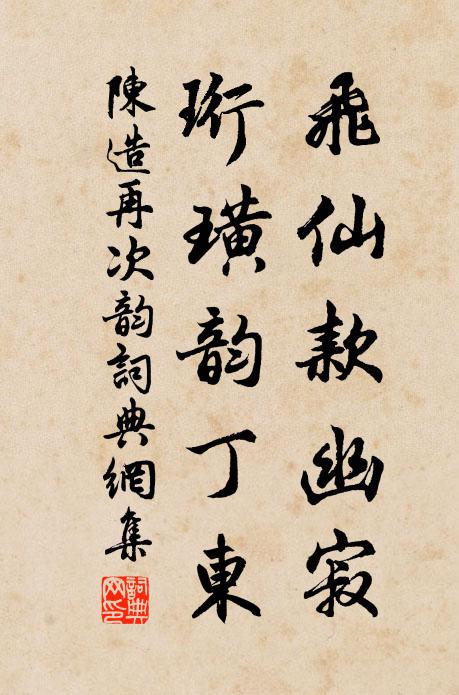 飛仙款幽寂
珩璜韵丁東
陳造再次韵詞典網集
詞典网印